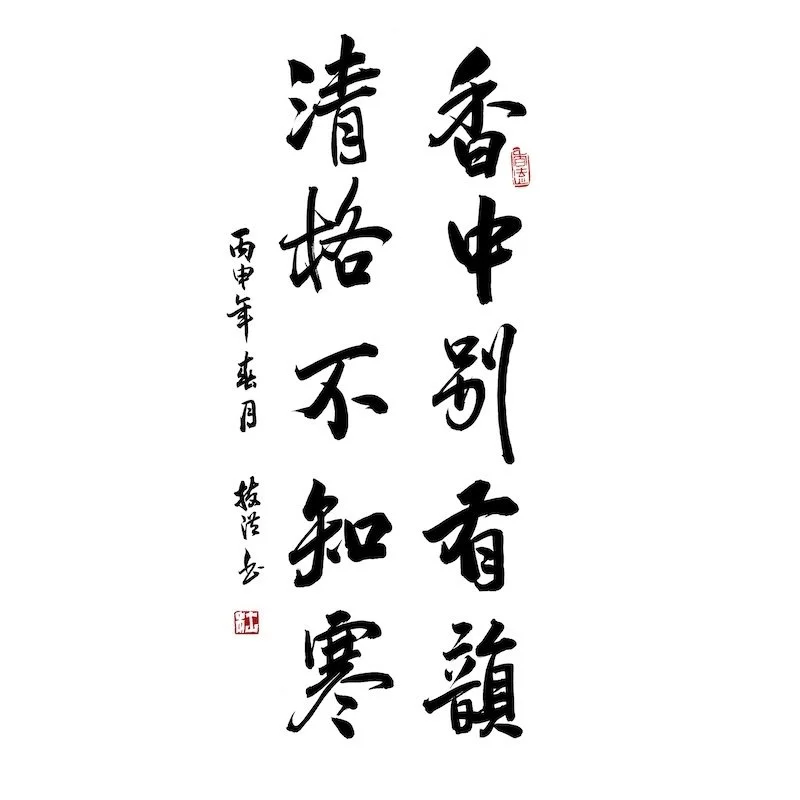 香中别有韻
清格不知寒
丙申年春月
书